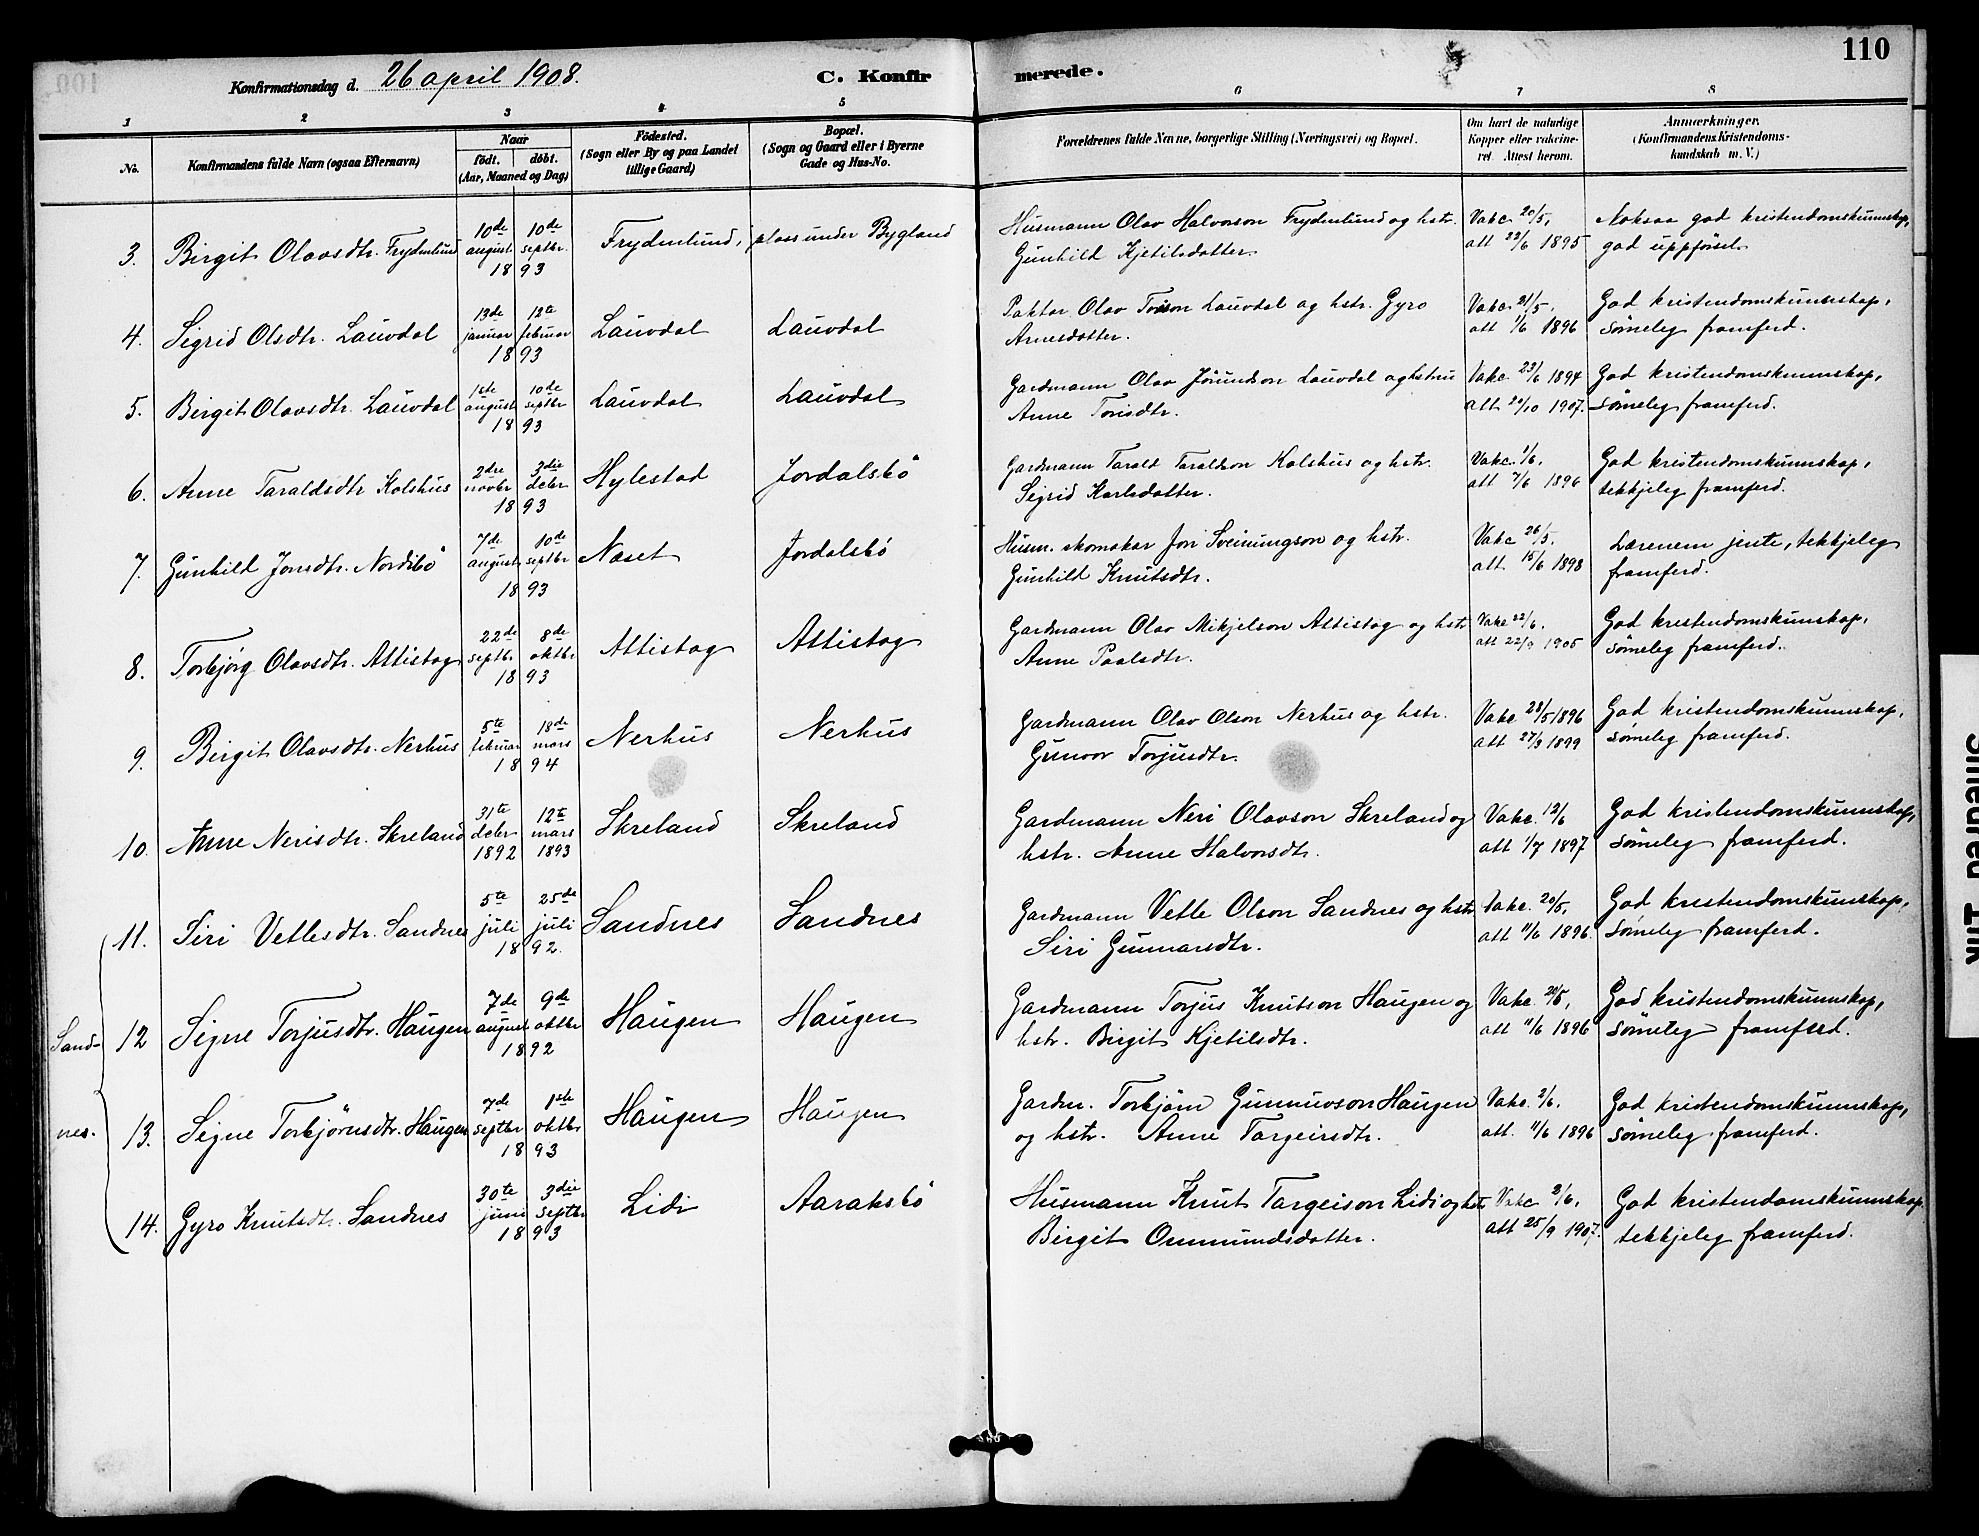 110
Konfirmationsdag d. 26 april 1908.
C. Konfirmerede.
1 2 3 4 5 6 7 8
No.
Konfirmandens fulde Navn (ogsaa Efternavn)
Naar
födt. döbt.
(Aar, Maaned og Dag)
Födested.
(Sogn eller By og paa Landet
tillige Gaard)
Bopæl.
(Sogn og Gaard eller i Byerne
Gade og Hus-No.
Forældrenes fulde Navne, borgerlige Stilling (Næringsvei) og Bopæl.
Om havt de naturlige
Kopper eller vakcine-
ret. Attest herom.
Anmærkninger.
(Konfirmandens Kristendoms-
kundskab m. V.)
3. Birgit Olavsdtr. Frydenlund 10de august 10de septbr. 1893 Frydenlund, plass under Bygland
Husmann Olav Halvorson Frydenlund og hstr.
Gunhild Kjetilsdotter.
Vakc. 20/5,
att 22/6 1895
Noksaa god kristendomskunnskap,
god uppförsel.
4. Sigrid Olsdtr. Lauvdal 13de januar 12te februar 1893 Lauvdal Lauvdal
Paktar Olav Torson Lauvdal og hstr. Gyro
Arnesdotter.
Vakc. 21/5.
att 1/6 1896
God kristendomskunnskap,
sømeleg framferd.
5. Birgit Olavsdtr. Lauvdal 1ste august 10de septbr 1893 Lauvdal Lauvdal
Gardmann Olav Jörundson Lauvdal og hstru
Anne Torisdtr.
Vakc. 23/6 1894
att 20/10 1907.
God kristendomskunnskap,
sømeleg framferd.
6. Anne Taraldsdtr Kolshus 2dre novbr 3die debr 1893 Hylestad Jordalsbö
Gardmann Tarald Taraldson Kolshus og hstr.
Sigrid Karlsdotter.
Vakc. 1/6.
att 7/6 1896
God kristendomskunnskap,
tekkjeleg framferd.
7. Gunhild Jonsdtr. Nordibö 7de august 10de septbr 1893 Naset Jordalsbö
Husm. skomakar Jon Sveinungson og hstr.
Gunhild Knutsdtr.
Vakc 26/5.
att. 15/6 1898
Lærenem jente, tekkjeleg
framferd.
8. Torbjörg Olavsdtr. Attistog 22de septbr. 8de oktbr. 1893 Attistog Attistog
Gardmann Olav Mikjelson Attistog og hstr
Anne Paalsdtr.
Vakc 22/6.
att 22/9 1905
God kristendomskunskap,
sømeleg framferd.
9. Birgit Olavsdtr. Nerhus 5te februar 18de mars 1894 Nerhus Nerhus
Gardmann Olav Olson Nerhus og hstr.
Gunvor Torjusdtr.
Vakc 28/5 1896
att 27/3 1899
God kristendomskunnskap,
sømeleg framferd.
10. Anne Nerisdtr. Skreland 31te debr 1892 12te mars 1893 Skreland Skreland
Gardmann Neri Olavson Skreland og
hstr. Anne Halvorsdtr.
Vakc. 12/6
att 1/7 1897
God kristendomskunnskap,
sømeleg framferd.
11. Siri Vetlesdtr. Sandnes 5te juli 25de juli 1892. Sandnes Sandnes
Gardmann Vetle Olson Sandnes og hstr
Siri Gunnarsdtr.
Vakc. 20/5,
att 11/6 1896.
God kristendomskunskap,
sømeleg framferd.
Sand-
12 Signe Torjusdtr. Haugen 7de august 9de oktbr 1892 Haugen Haugen
Gardmann Torjus Knutson Haugen og
hstr. Birgit Kjetilsdtr.
Vakc.
att 11/6 1896
God kristendomskunnskap,
sömeleg framferd.
nes.
13. Signe Torbjörnsdtr. Haugen 7de septbr 1ste oktbr 1893 Haugen Haugen
Gardm. Torbjörn Gunnuvson Haugen
og hstr. Anne Targeirsdtr.
Vakc. 2/6.
att. 11/6 1896
God kristendomskunnskap,
sømeleg framferd.
14. Gyro Knutsdtr. Sandnes 30te juni 3die septbr 1893 Lidi Aaraksbö
Husmann Knut Targeison Lidi og hstr
Birgit Ommundsdotter.
Vakc 2/6.
att 25/9 1907.
God kristendomskunnskap
tekkjeleg framferd.